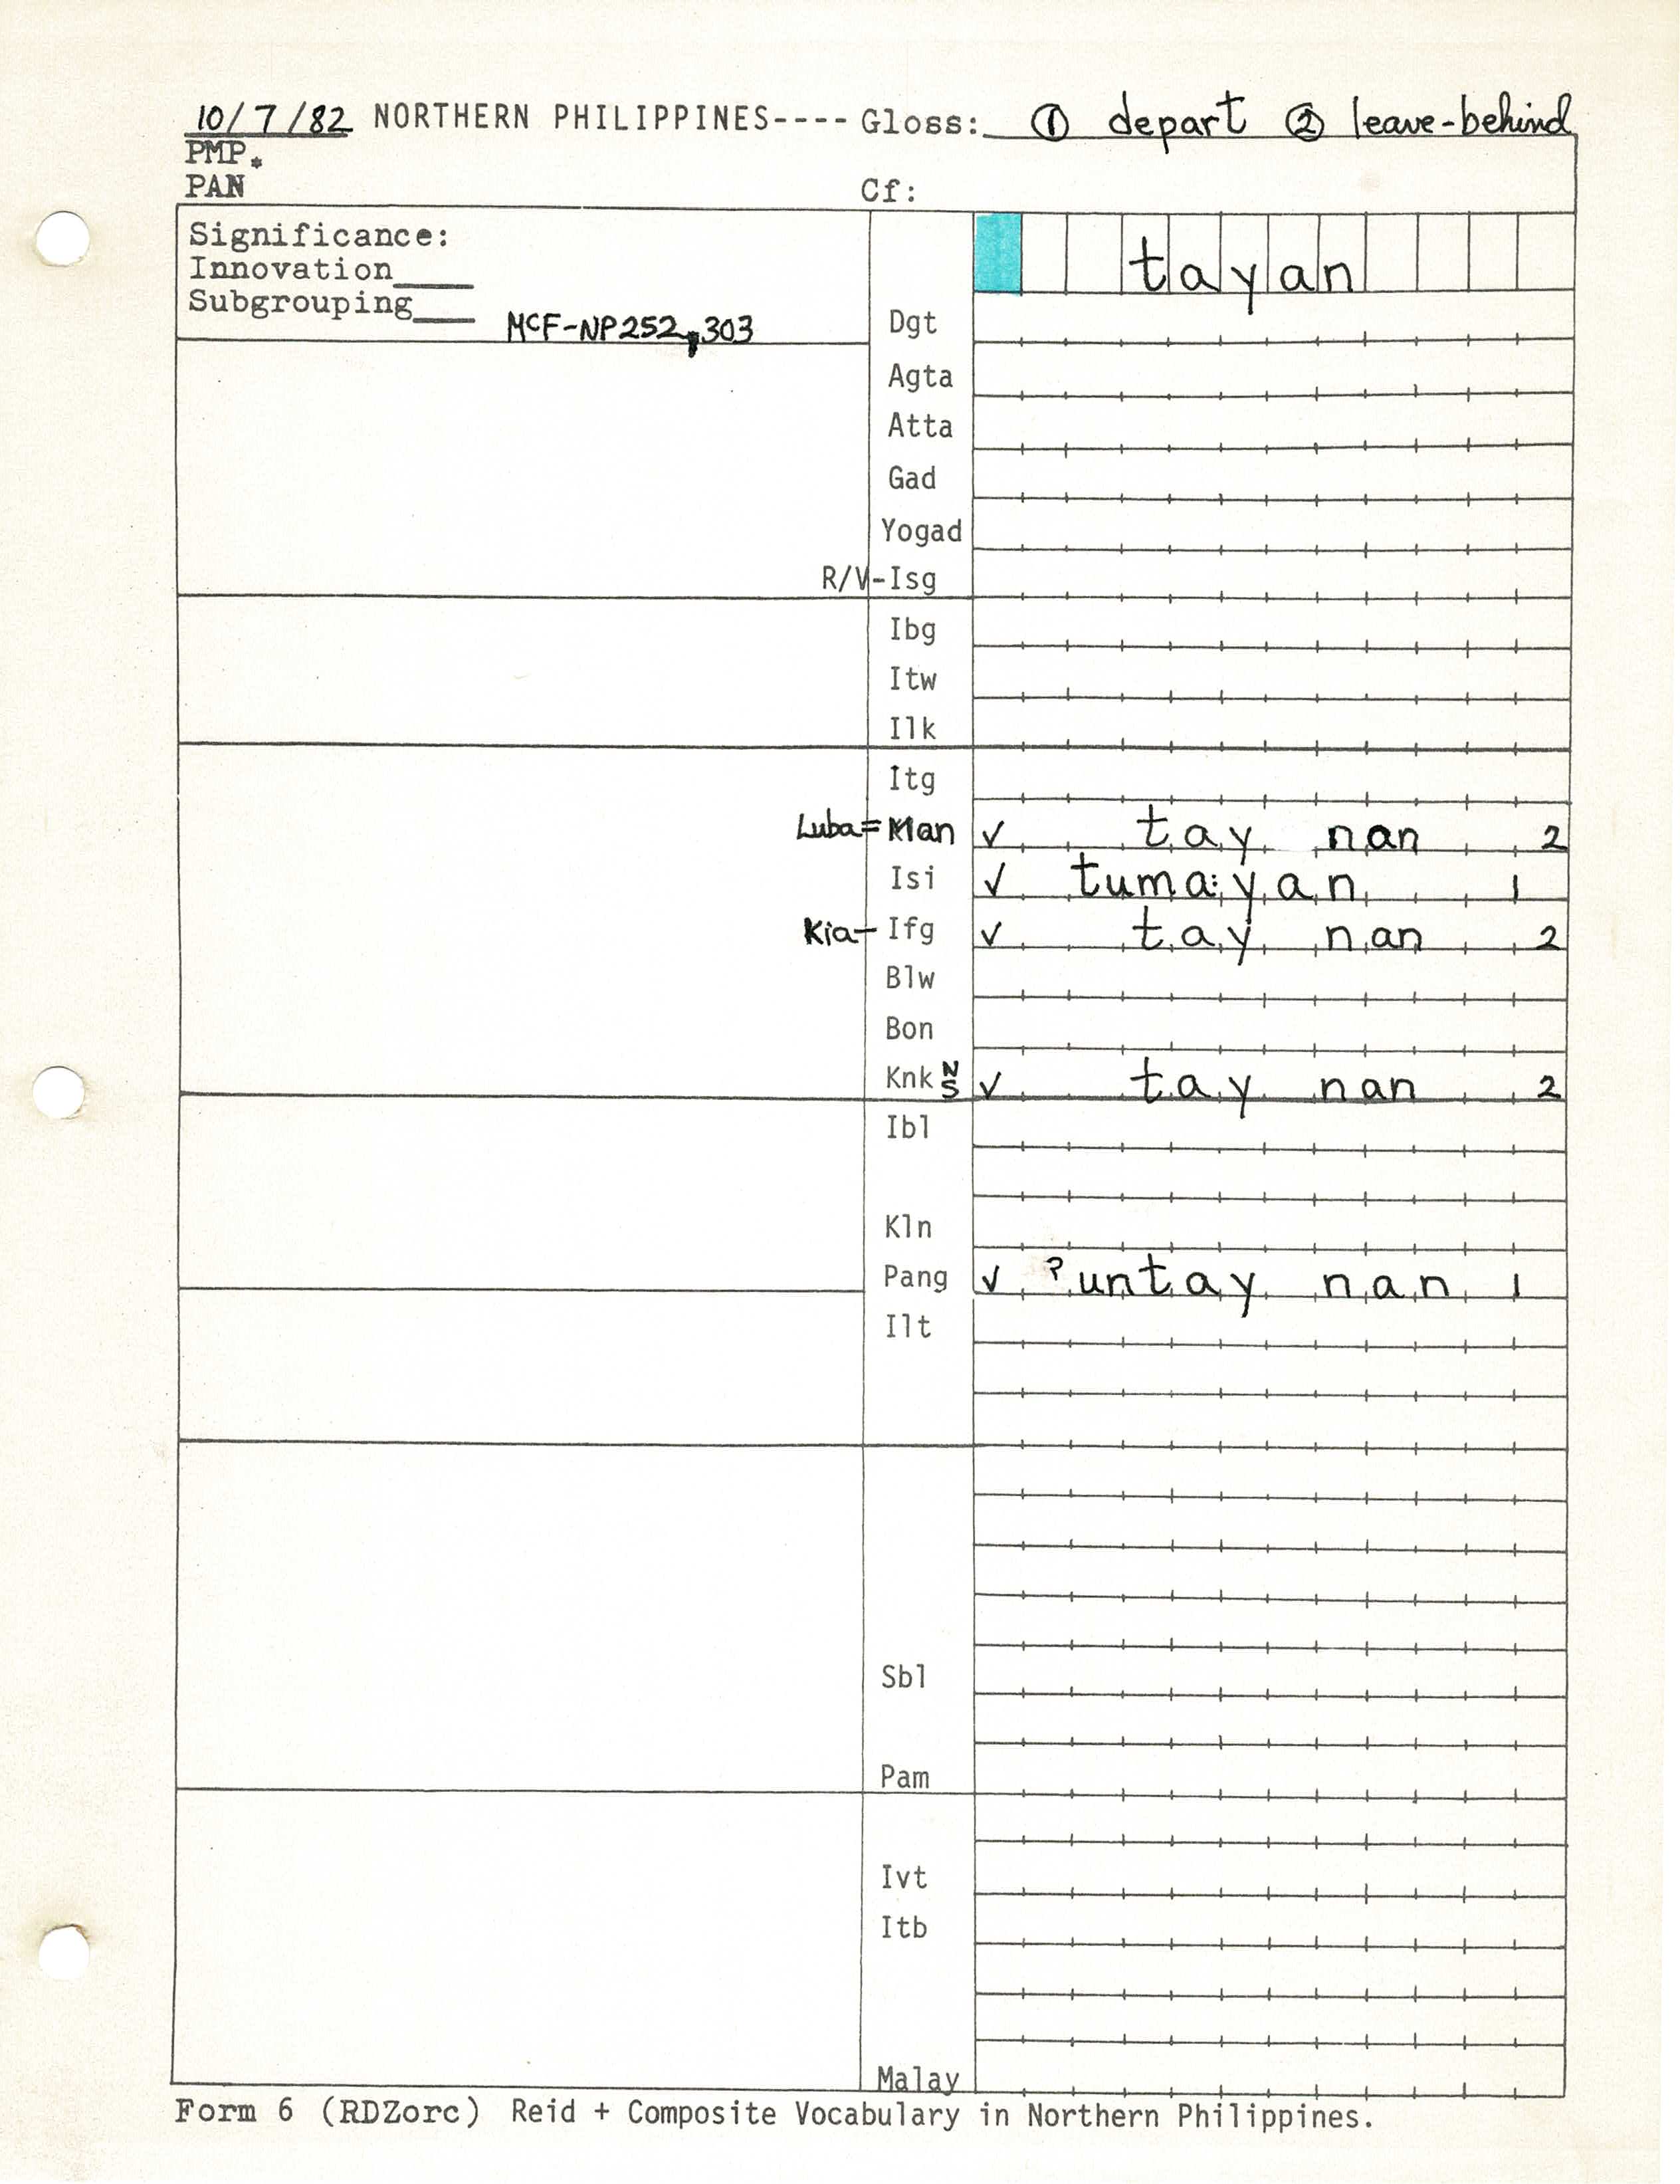 10/7/82 NORTHERN PHILIPPINES---- Gloss: ① depart ② leave-behind
PMP.
PAN Cf:
Significance:
Innovation____
Subgrouping____ McF-NP252,303
tayan
Dgt
Agta
Atta
Gad
Yogad
R/V-Isg
Ibg
Itw
Ilk
Itg
Luba= Man ✓ tay nan 2
Isi ✓ tuma:yan 1
Kia- Ifg ✓ tay nan 2
Blw
Bon
Knk N S ✓ tay nan 2
Ibl
Kln
Pang ✓ ?untay nan 1
Ilt
Sbl
Pam
Ivt
Itb
Malay
Form 6 (RDZorc) Reid + Composite Vocabulary in Northern Philippines.